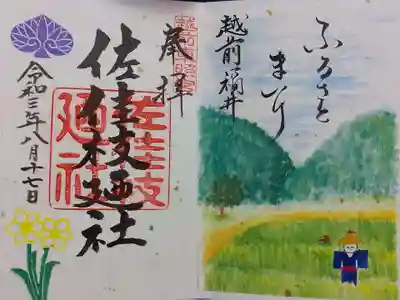 ふるさと
まいり
越前福井
越前東照宮
奉拝
佐佳枝廼社
佐佳枝
廼社
令和三年八月十七日